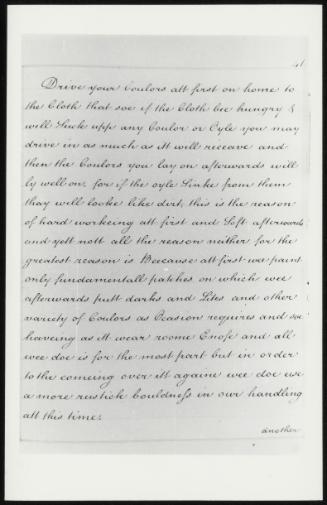 41
Drive your Coulors att first on home to
the Cloth that soe if the Cloth bee hungry &
will Suck upp any Coulor or Oyle you may
drive in as much as itt will receave and
then the Coulors you lay on afterwards will
ly well on for if the oyle Sinke from them
thay will looke like durt, this is the reason
of hard workeing att first and Soft afterwards
and yett nott all the reason neither for the
greatest reason is Beecause att first wee paint
only fundamentall patches on which wee
afterwards putt darks and Lites and other
variety of Coulors as Ocasion requires and soe
haveing as itt wear roome Enofe and all
wee doe is for the most part but in order
to the comeing over itt againe wee doe use
a more rustick bouldness in our handling
att this time:
another